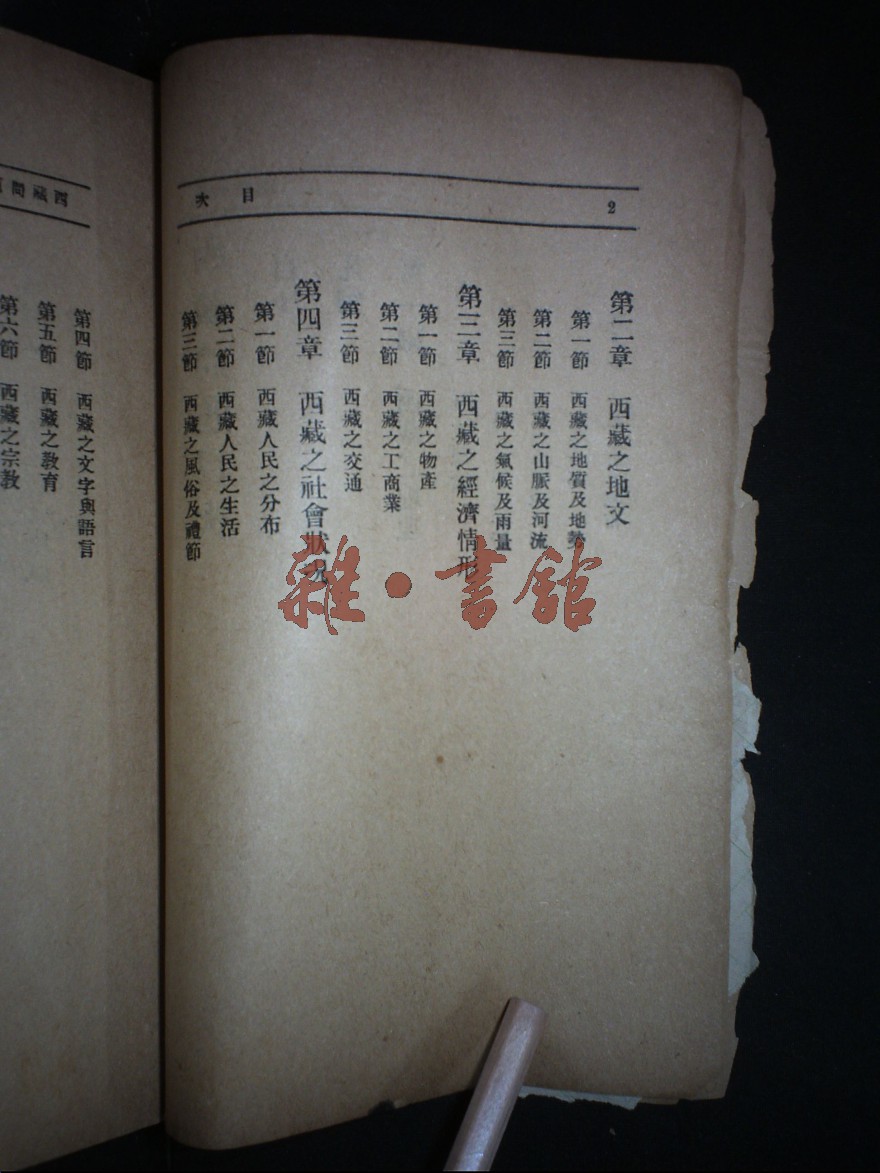 目次
2
第二章 西藏之地文
第一節 西藏之地質及地勢
第二節 西藏之山脈及河流
第三節 西藏之氣候及雨量
第三章 西藏之經濟情形
第一節 西藏之物產
第二節 西藏之工商業
第三節 西藏之交通
第四章 西藏之社會狀況
第一節 西藏人民之分布
第二節 西藏人民之生活
第三節 西藏之風俗及禮節
西藏問
第四節 西藏之文字與語言
第五節 西藏之教育
第六節 西藏之宗教
雜·書館